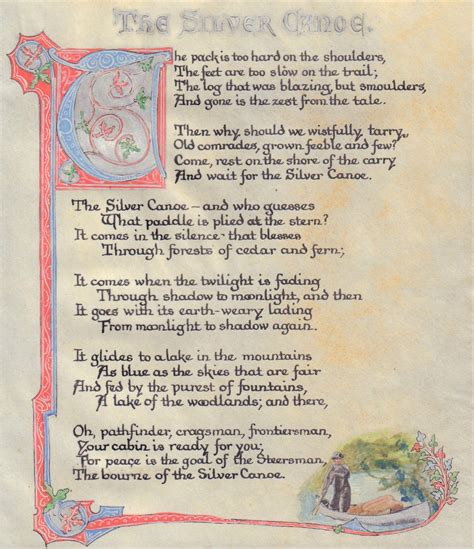 The Silver Canoe.
The pack is too hard on the shoulders,
The feet are too slow on the trail;
The log that was blazing, but smoulders,
And gone is the zest from the tale..
Then why, should we wistfully, tarry,
Old comrades, grown feeble and few?
Come, rest on the shore of the carry
And wait for the Silver Canoe.
The Silver Canoe – and who guesses
What paddle is plied at the stern?
It comes in the silence that blesses
Through forests of cedar and fern;
It comes when the twilight is fading
Through shadow to moonlight, and then
It goes with its earth-weary lading
From moonlight to shadow again.
It glides to a lake in the mountains
As blue as the skies that are fair
And fed by the purest of fountains,
A lake of the woodlands; and there,
Oh, pathfinder, cragsman, frontiersman,
Your cabin is ready for you;
For peace is the goal of the Steersman,
The bourne of the Silver Canoe.